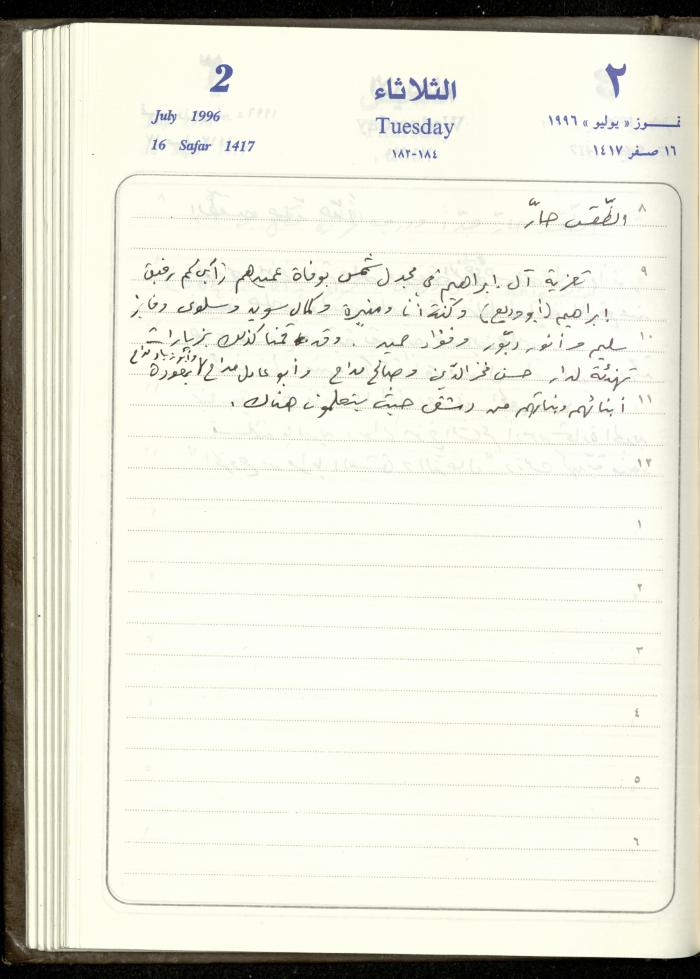 2
الثلاثاء
٢
July 1996
Tuesday
تمـوز « يوليو » ١٩٩٦
16 Safar 1417
١٨٢-١٨٤
١٦ صفر ١٤١٧
٨ الطّقس حارّ
٩ تعزية آل ابراهيم في مجدل شمس بوفاة عميدهم زاكي كم رفيق
ابراهيم (أبو وديع) وكنت أنا ومنيرة وكمال سويد وسلوى وفايز
١٠ سليم وأنور دبّور وفؤاد صيد. وقد قمنا كذلك بزيارات
تهنئة لدار حسن فخر الدّين وصالح مداح وأبو عادل مداح بعودة
١١ أبنائهم وبناتهم من دمشق حيث يتعلمون هناك.
١٢
١
٢
٣
٤
٥
٦